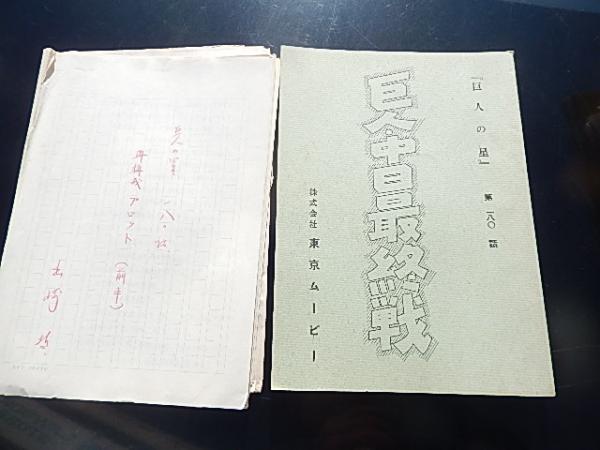 『巨人の星』 第一八〇話
巨人・中日最終戦
株式会社 東京ムービー
巨人の星 一八〇話
再構成プロット (前半)
出崎 哲